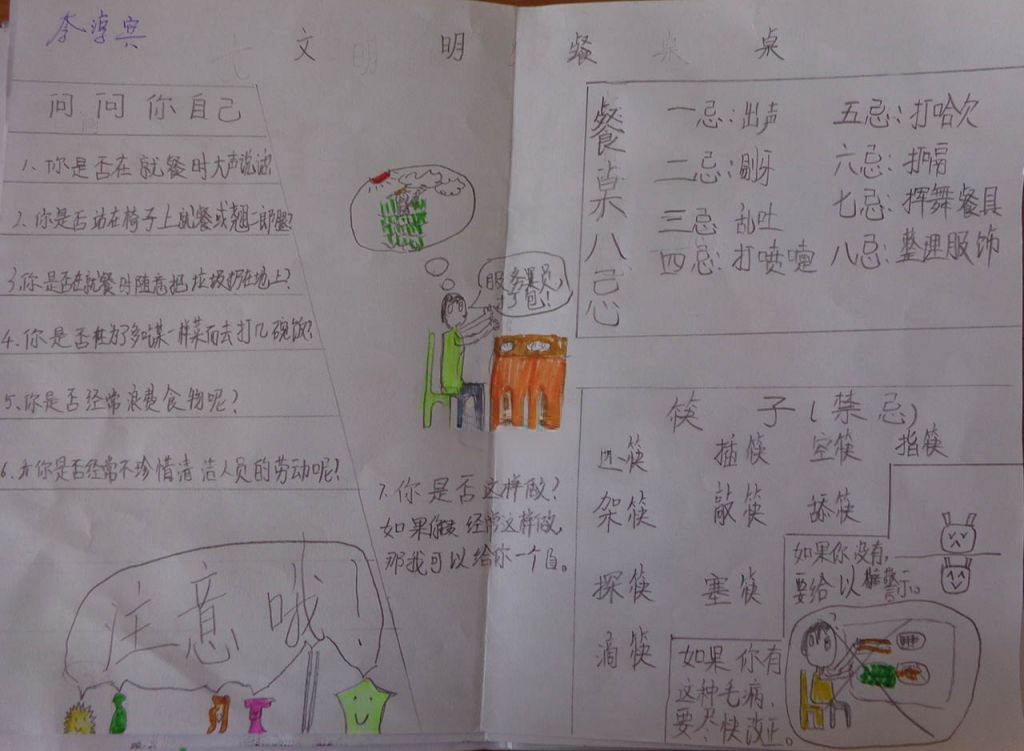 李淳宾
文 明 餐 桌
问 问 你 自 己
1、你是否在就餐时大声说话
2、你是否站在椅子上就餐或翘二郎腿?
3、你是否在就餐时随意把垃圾扔在地上?
4、你是否在为了多吃某一样菜而去打几碗饭?
5、你是否经常浪费食物呢?
6、你是否经常不珍惜清洁人员的劳动呢?
注意哦!
服务员,
打包!
7、你是否这样做?
如果你 经常这样做,
那我可以给你一个
餐桌八忌
一忌:出声
二忌:剔牙
三忌 乱吐
四忌:打喷嚏
五忌:打哈欠
六忌:打嗝
七忌:挥舞餐具
八忌:整理服饰
筷 子(禁忌)
迷筷 插筷 空筷 指筷
架筷 敲筷 舔筷
探筷 塞筷
滴筷
如果你没有,
要给以 警示。
如果你有
这种毛病,
要尽快改正。